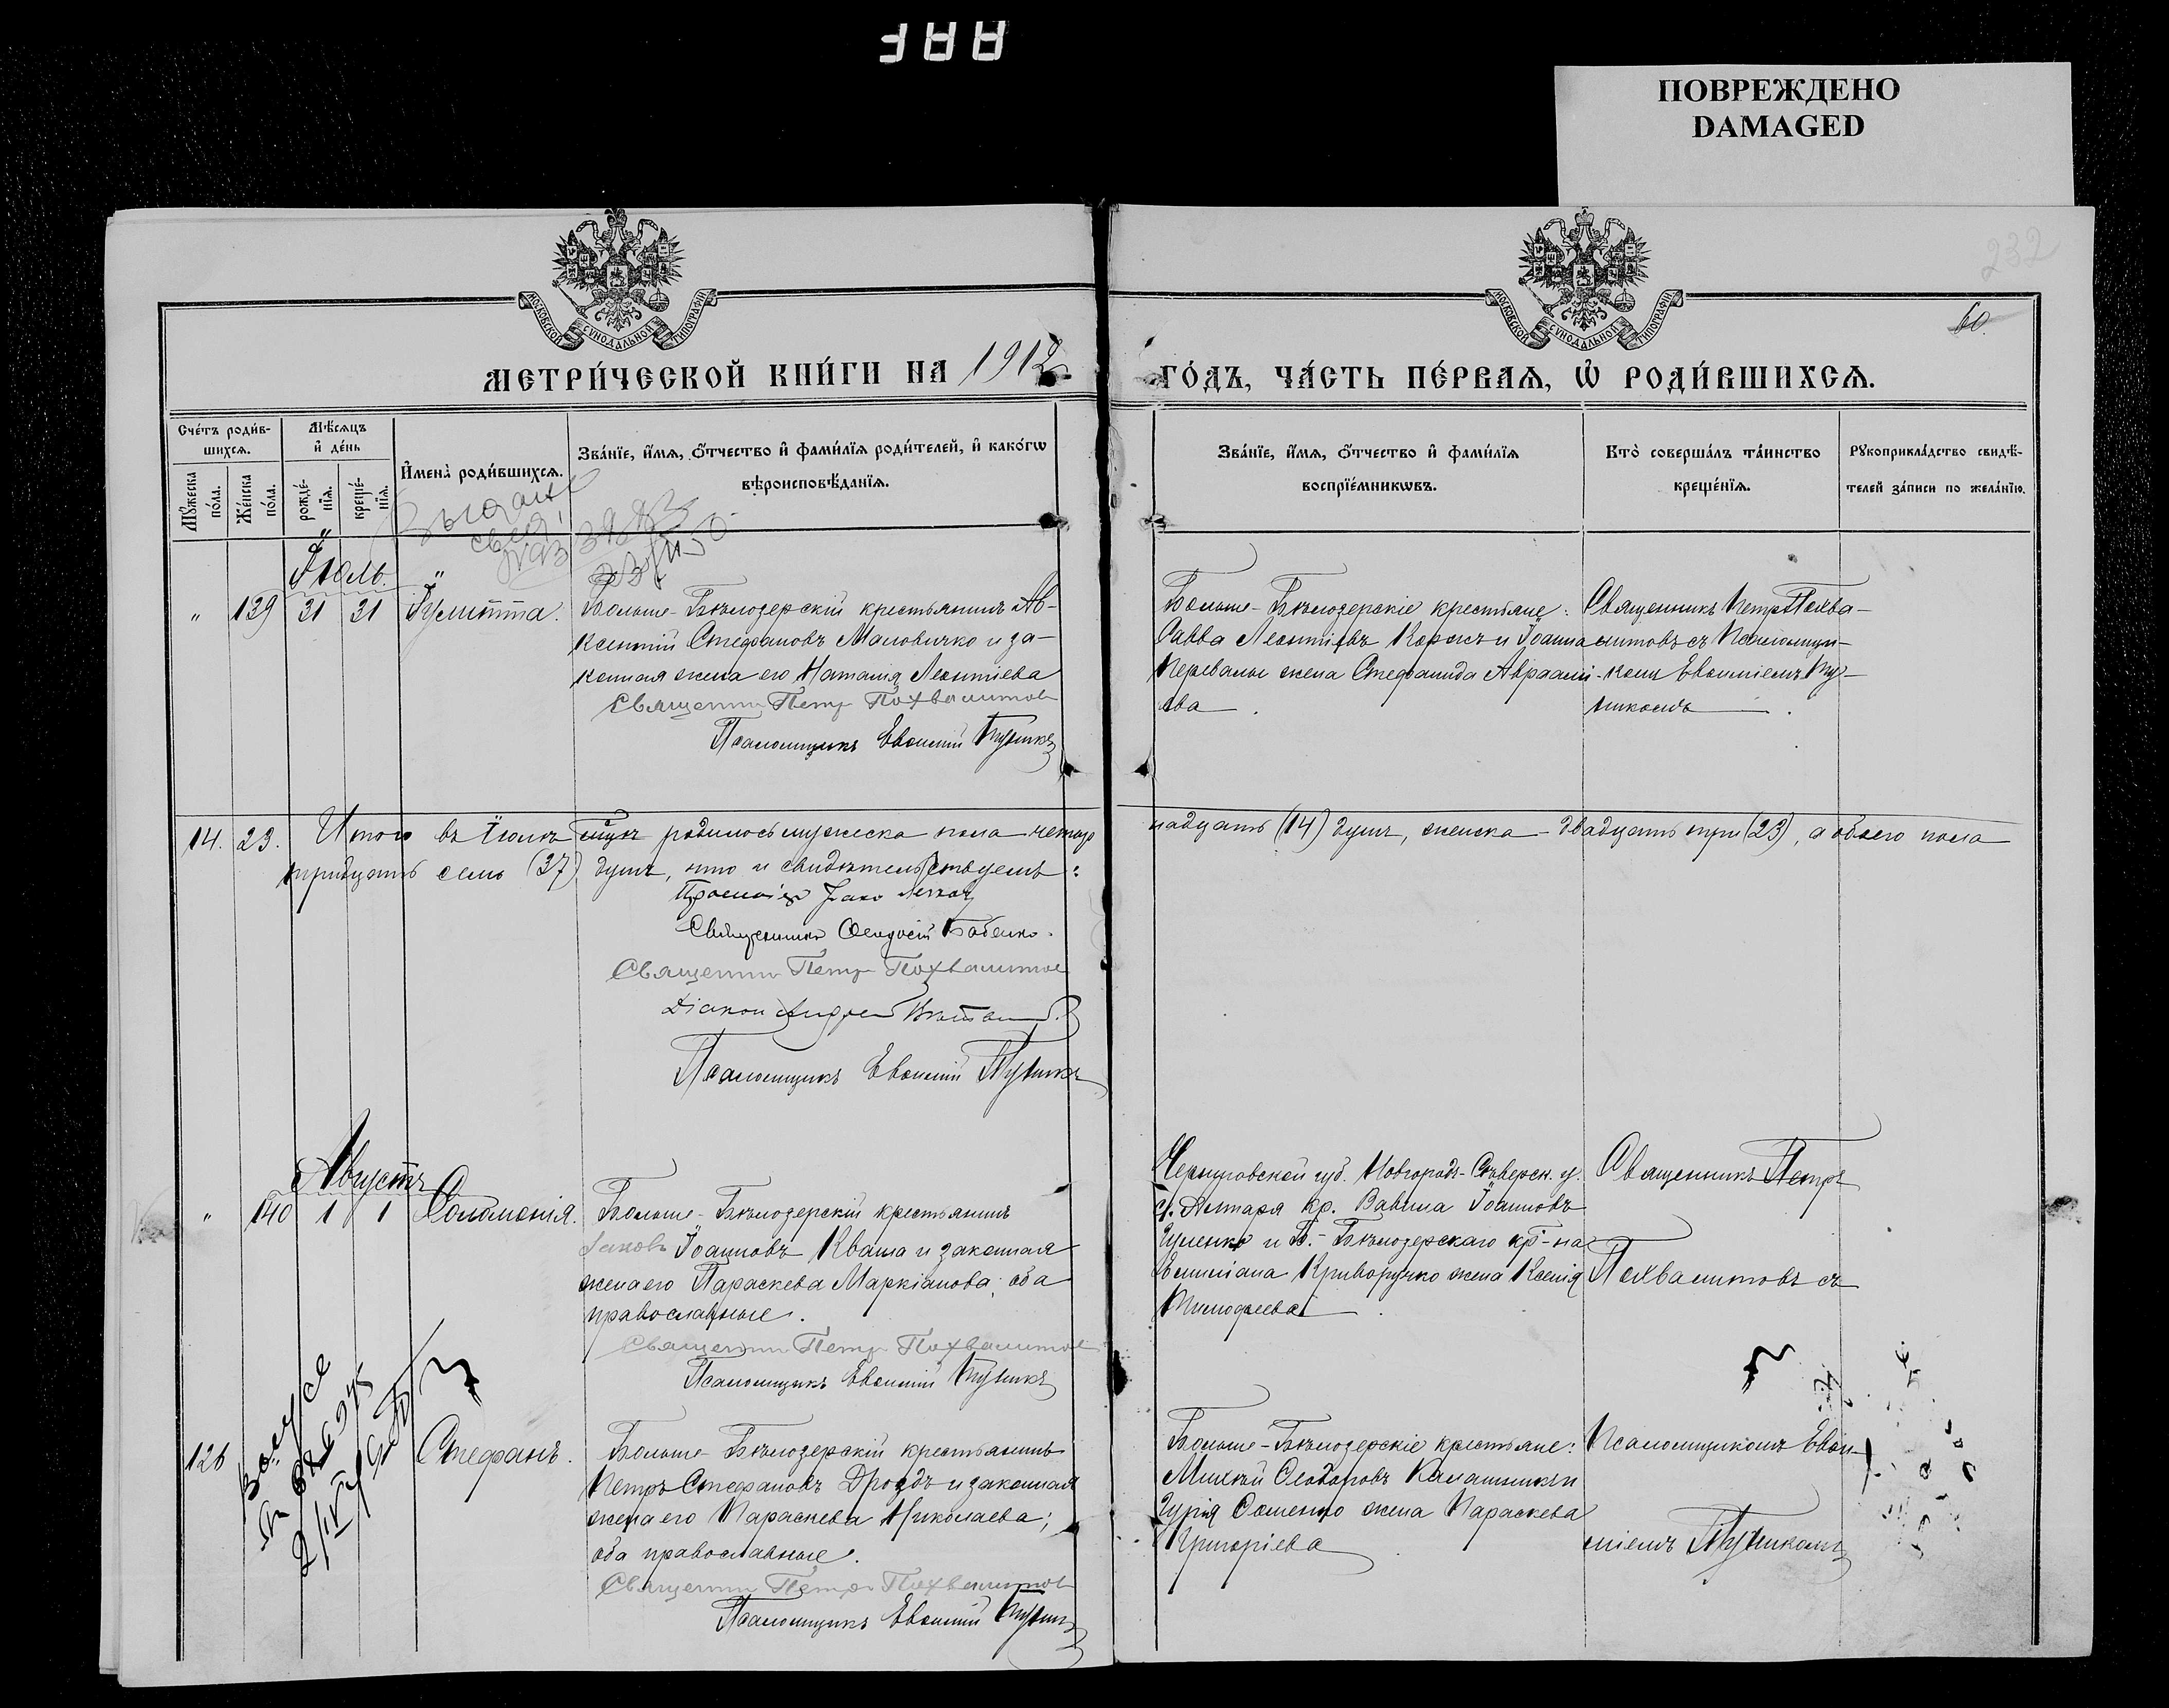 ПОВРЕЖДЕНО
DAMAGED
232
60.
МОСКОВСКОЙ СѴНОДАЛЬНОЙ ТИПОГРАФІИ
МОСКОВСКОЙ СѴНОДАЛЬНОЙ ТИПОГРАФІИ
МЕТРИ́ЧЕСКОЙ КНИ́ГИ НА 1912
ГО́ДЪ, ЧА́СТЬ ПЕ́РВАѦ, Ѡ РОДИ́ВШИХСѦ.
Сче́тъ роди́в-
шихсѧ.
Мꙋ́жеска
по́ла.
Же́нска
по́ла.
Мѣ́сѧцъ
и де́нь
рожде́-
нїѧ.
креще́-
нїѧ.
Имена̀ роди́вшихсѧ.
Зва́нїе, и́мѧ, ѻ́тчество и фами́лїѧ роди́телей, и како́гѡ
вѣроисповѣ́данїѧ.
Зва́нїе, и́мѧ, ѻ́тчество и фами́лїѧ
воспрїе́мникѡвъ.
Кто̀ соверша́лъ та́инство
креще́нїѧ.
Рꙋкоприкла́дство свидѣ́-
телей за́писи по жела́нїю.
Іюль.
" 139 31 31 Іулитта.
Больше-Бѣлозерскій крестьянинъ Ав-
ксентій Стефановъ Маловичко и за-
конная жена его Наталія Леонтіева
Священник Петр Похвалитов
Псаломщикъ Евѳимій Пушикъ
Больше-Бѣлозерскіе крестьяне:
Савва Леонтіевъ Коржъ и Іоанна
Перевалы жена Стефанида Авраамі-
ева
Священникъ Петръ Похва-
литовъ съ Псаломщи-
комъ Евѳиміемъ Пу-
шикомъ
14. 23. Итого въ Іюлѣ мцѣ родилось мужеска пола четыр
надцать (14) душъ, женска - двадцать три (23), а обоего пола
тридцать семь (37) душъ, что и свидѣтельствуемъ:
Священникъ Ѳеодосій Бабенко.
Священник Петр Похвалитов
Діакон Андрей
Псаломщикъ Евѳимій Пушикъ
Августъ
" 140 1 1 Соломонія.
Больше-Бѣлозерскій крестьянинъ
Іаковъ Іоанновъ Кваша и законная
жена его Параскева Маркіанова; оба
православные.
Священник Петр Похвалитов
Псаломщикъ Евѳимій Пушикъ
Черниговской губ. Новгородъ-Сѣверск. у.
с. Алтаря кр. Вавила Іоанновъ
и Б.-Бѣлозерскаго кр-на
Криворучко жена Ксенія
Тимоѳеева
Священникъ Петръ
Похвалитовъ съ
126 Стефанъ.
Больше-Бѣлозерскій крестьянинъ
Петръ Стефановъ Дроздъ и законная
жена его Параскева Николаева;
оба православные.
Священник Петр Похвалитов
Псаломщикъ Евѳимій Пушикъ
Больше-Бѣлозерскіе крестьяне:
Михѣй Ѳеодоровъ Калашникъ и
Гурія Сѣменко жена Параскева
Григоріева
Псаломщикомъ Евѳи-
міемъ Пушикомъ